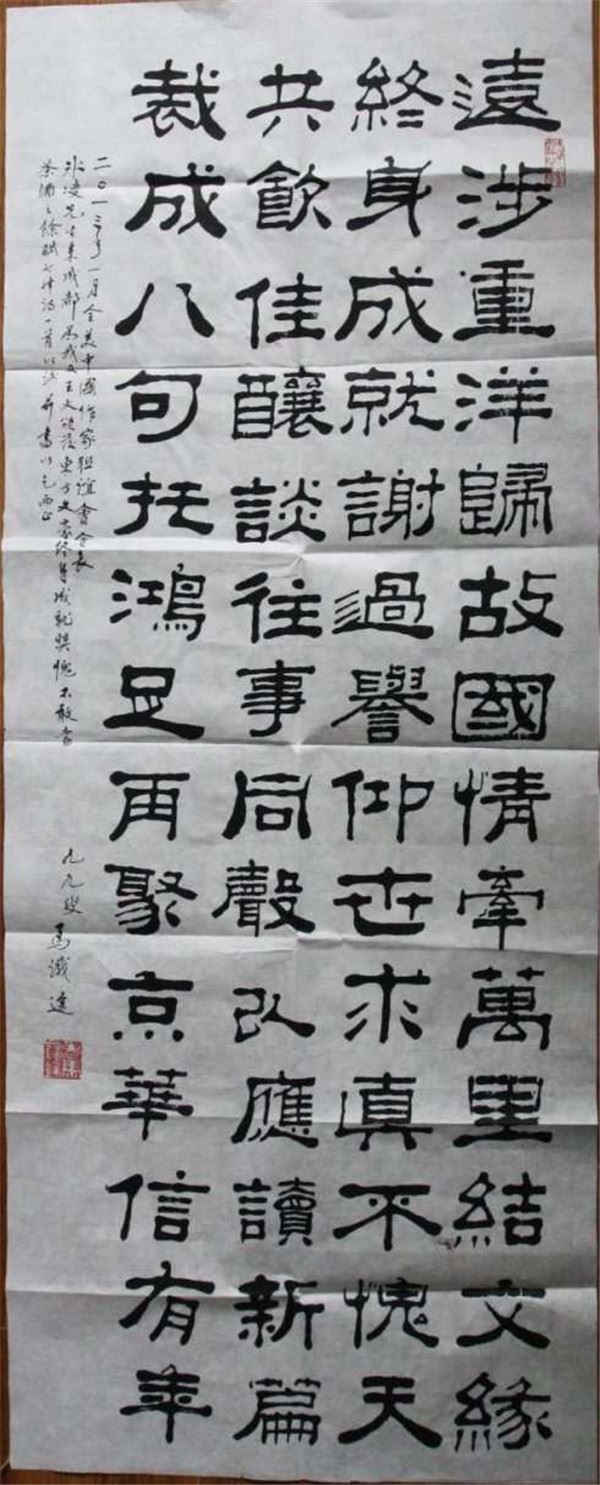 遠涉重洋歸故國情牽萬里結文緣
終身成就謝過譽仰世求真不愧天
共飲佳釀談往事同聲以應讀新篇
裁成八句托鴻足再聚京華信有年
二〇一三年一月全美中國作家聯誼會會長
冰凌先生來成都為我及王火頒發東方文豪終身成就獎愧不敢當
茶酒之餘賦七律詩一首以 并書以乞正
九九叟 馬識途